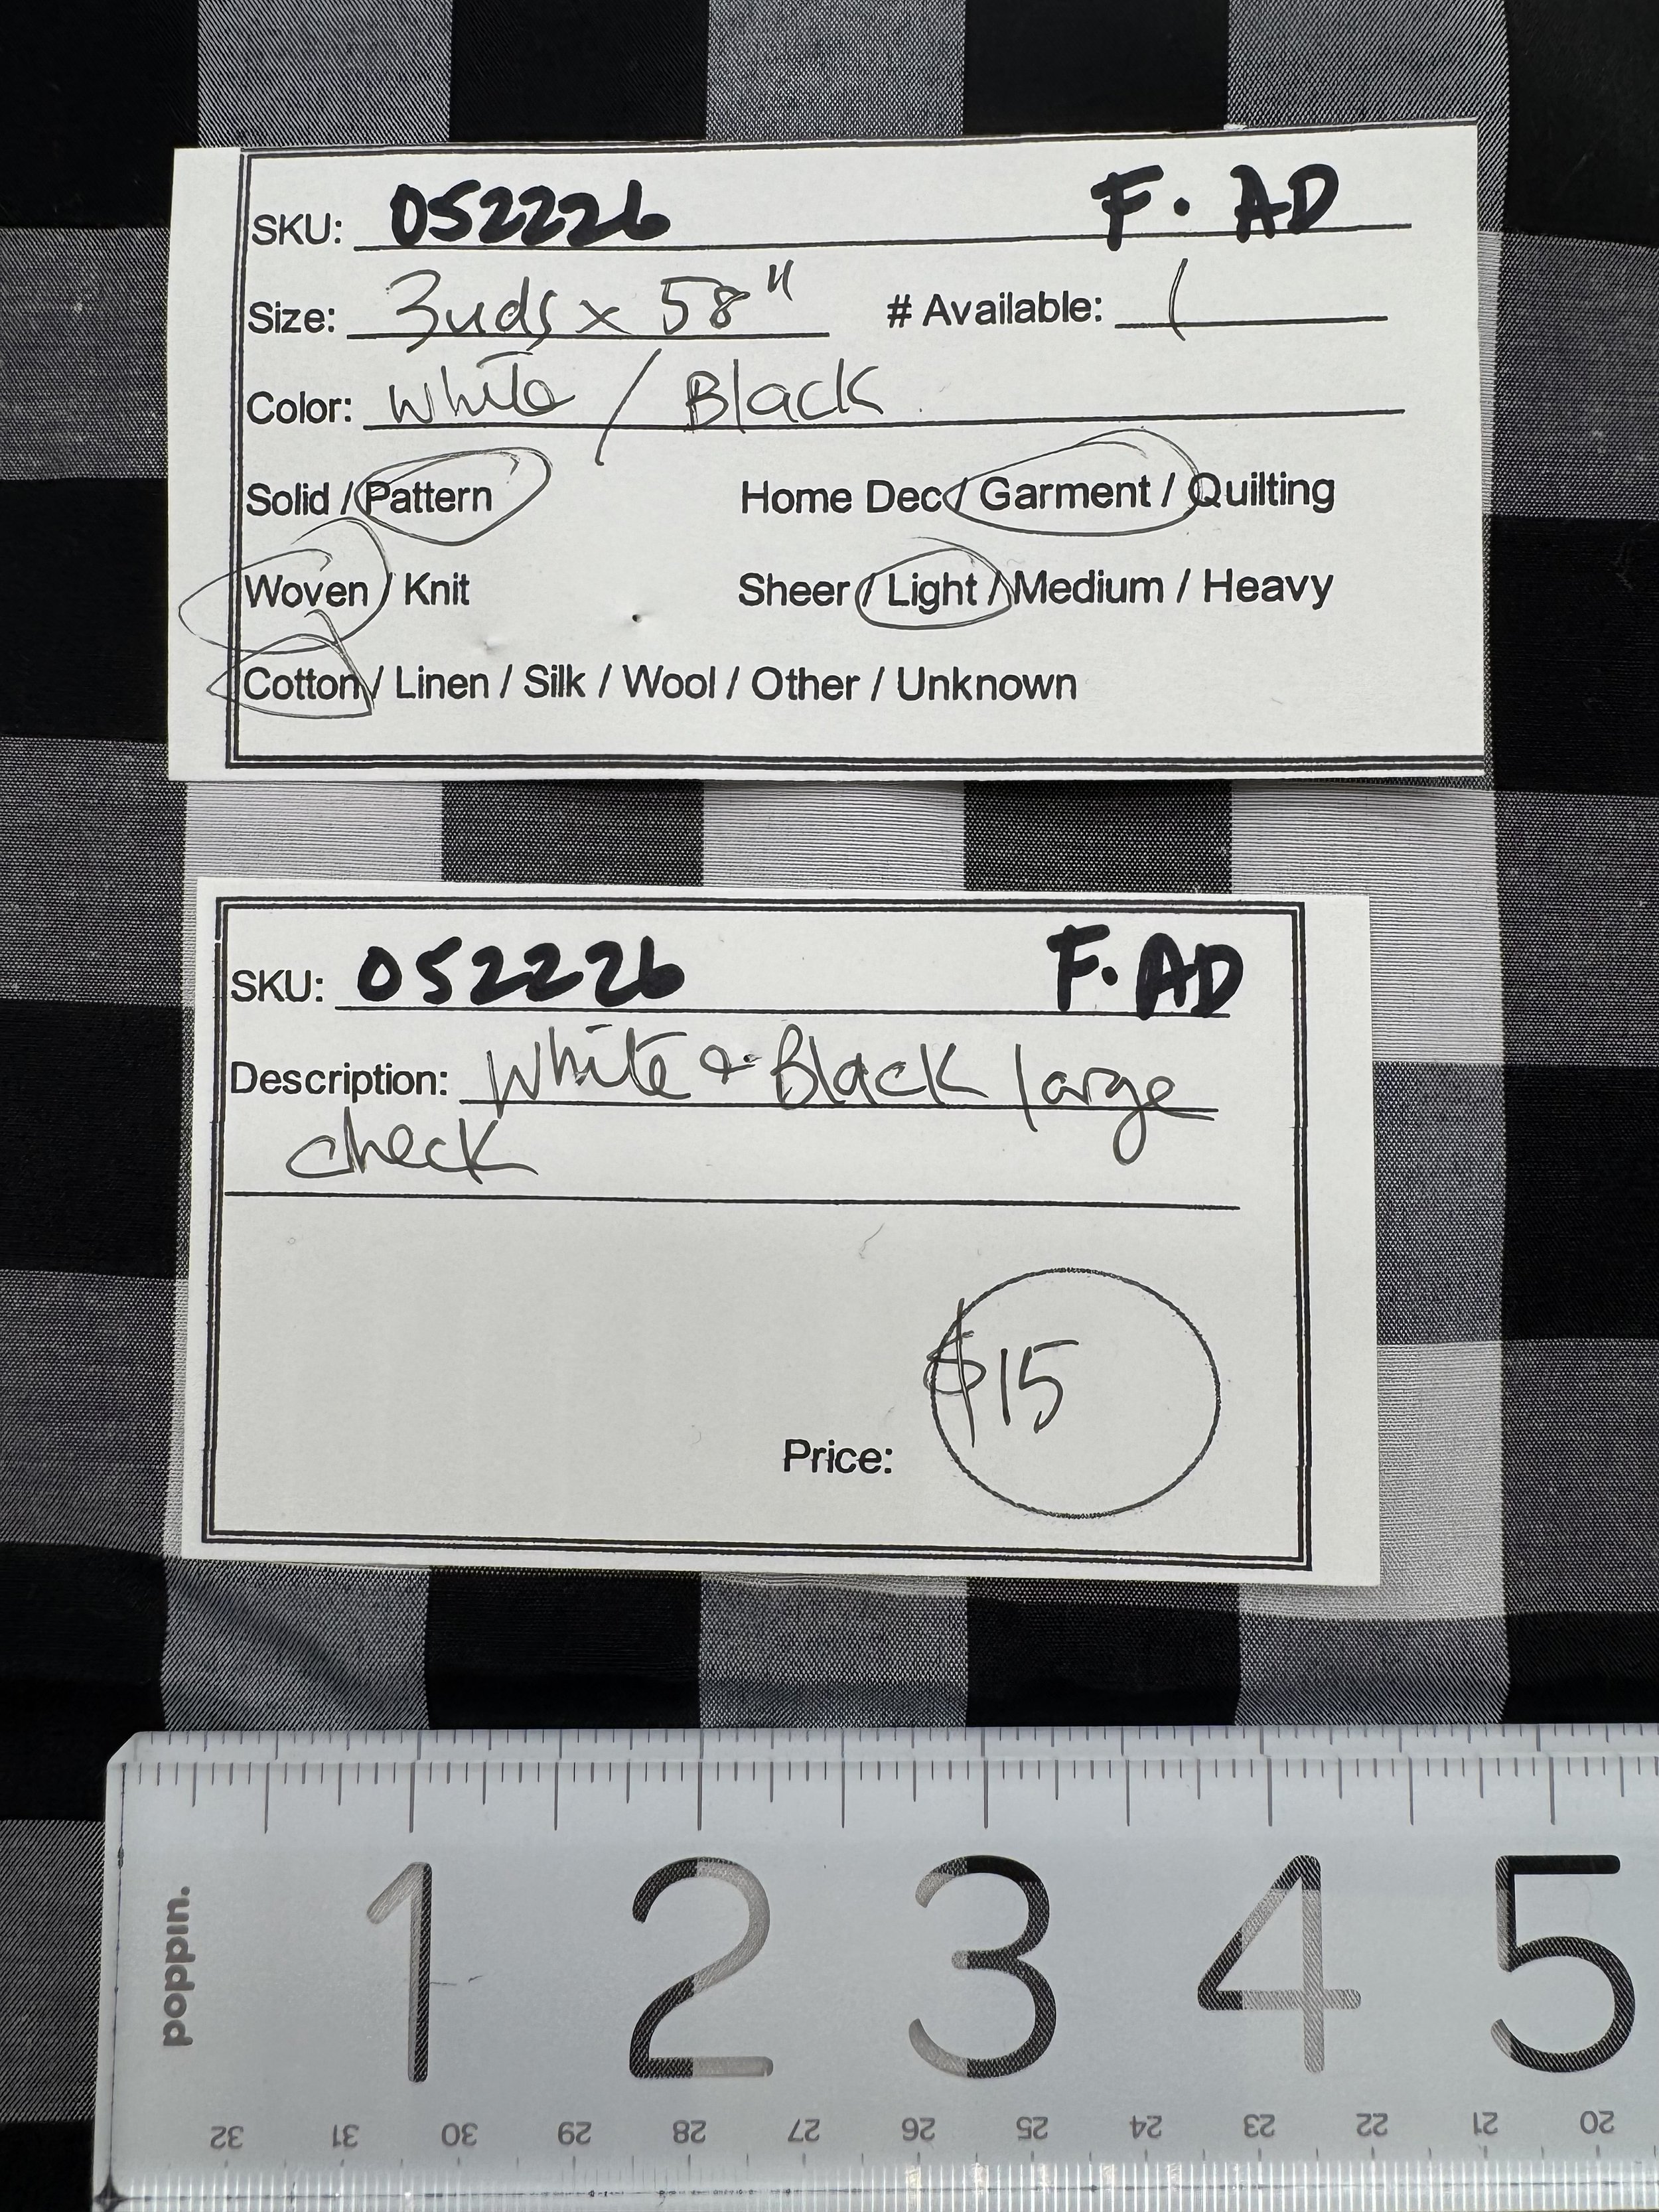 SKU: 052226 F. AD
Size: 3yds x 58" # Available: 1
Color: White / Black
Solid / Pattern Home Dec / Garment / Quilting
Woven / Knit Sheer / Light / Medium / Heavy
Cotton / Linen / Silk / Wool / Other / Unknown
SKU: 052226 F. AD
Description: White & Black large
check
$15
Price:
poppin.
1 2 3 4 5
32 31 30 29 28 27 26 25 24 23 22 21 20